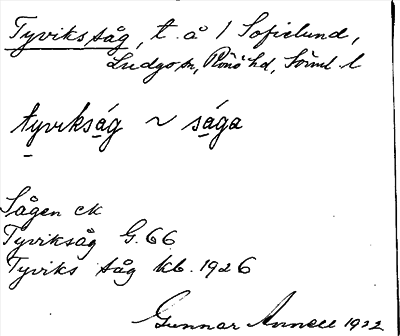 Tyviks såg, t. å 1 Sofielund,
Ludgo sn, Rönö hd, Södml. l
tyviksåg ~ såga
Sågen ek
Tyviksåg G. 66
Tyviks såg kb. 1926
Gunnar Annell 1932